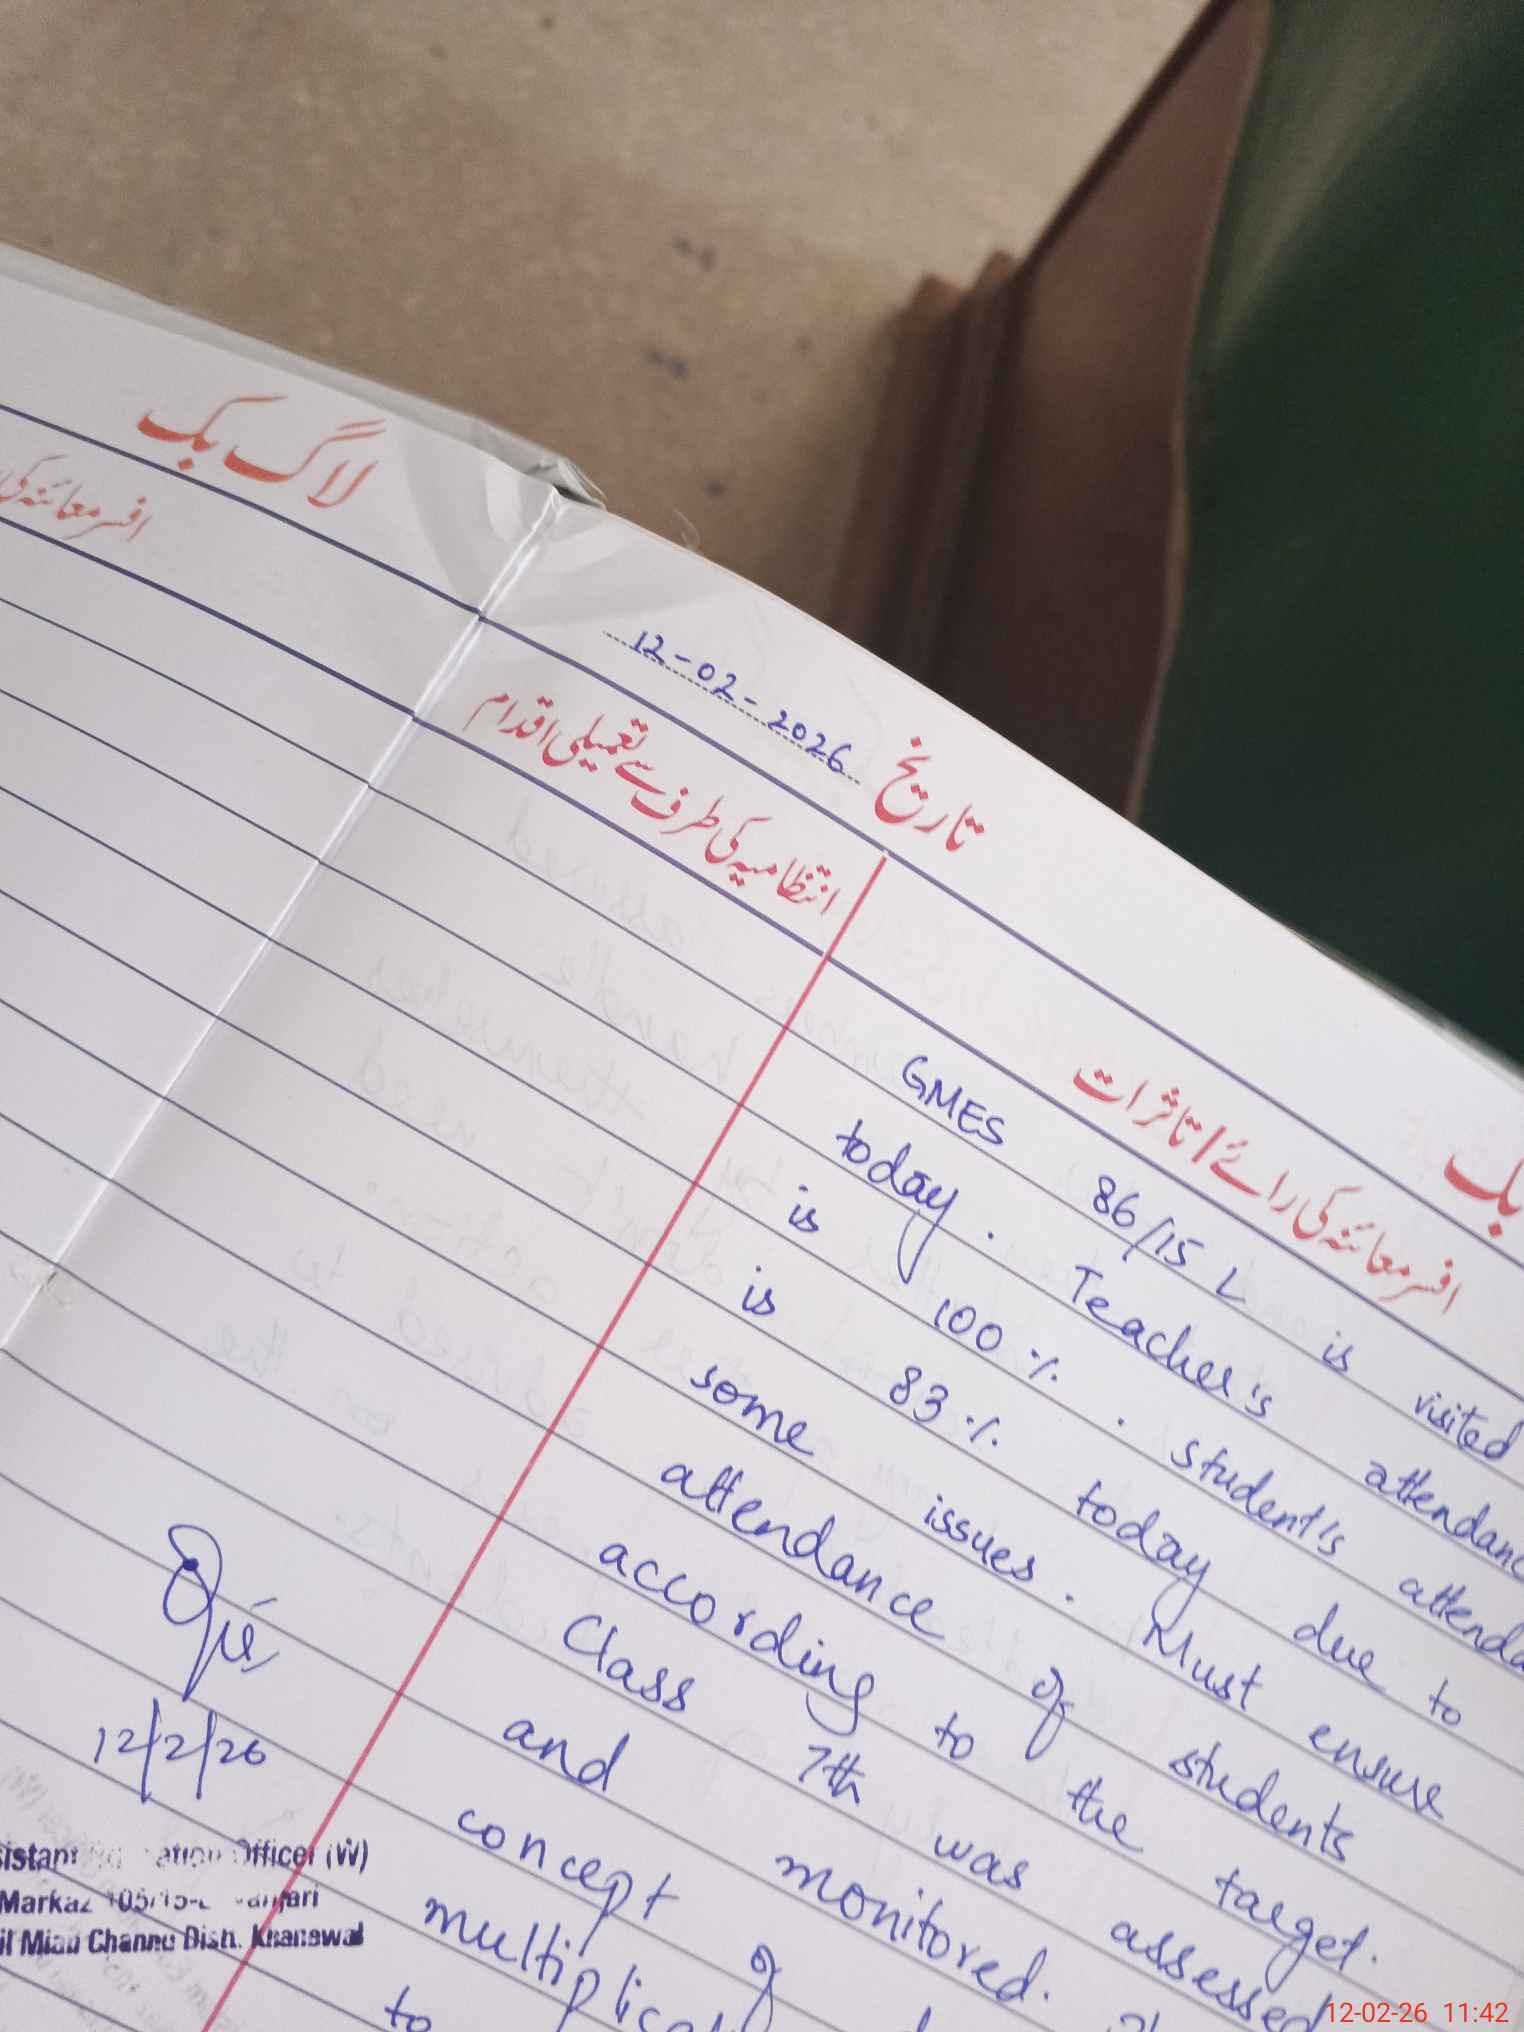 لاگ بک
افسر معائنہ کی
12-02-2026 تاریخ
انتظامیہ کی طرف سے تعمیلی اقدام
بک
افسر معائنہ کی رائے / تاثرات
GMES 86/15 L is visited
today. Teacher's attendanc
is 100 %. student's attenda
is 83 % today due to
some issues. Must ensure
attendance of students
according to the target.
Class 7th was assessed
and monitored.
concept of
multiplicat
to
12/2/26
Officer (W)
Markaz 105/15-L
il Mian Channu Distt. Khanewal
12-02-26 11:42